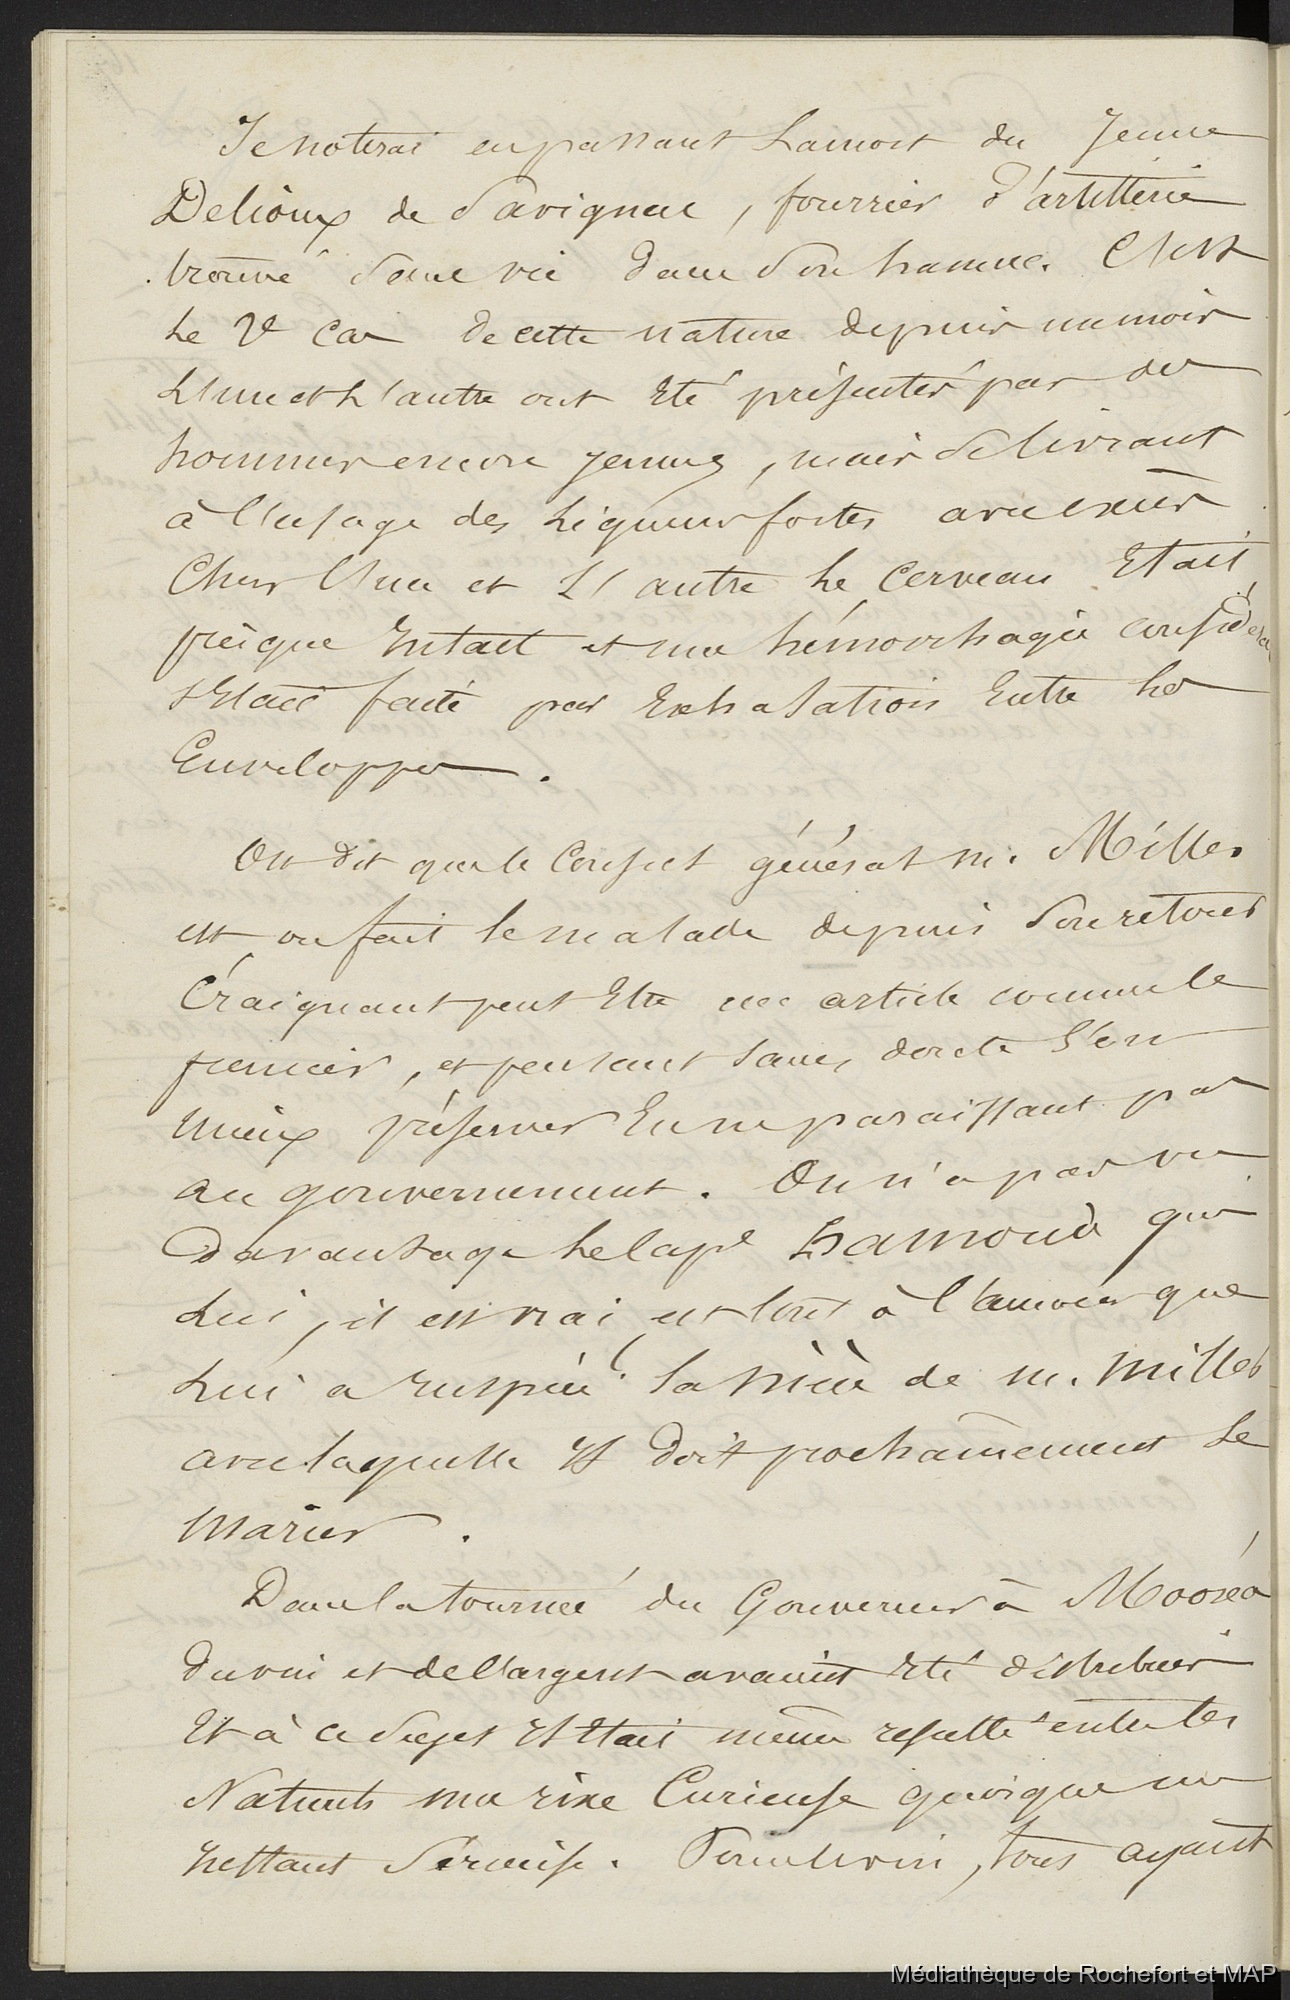 Je noterai en passant la mort du Jeune
Delioux de Savignac, fourrier d'artillerie
trouvé sans vie dans son hamac. C'est
le 2e Cas de cette nature depuis un mois
L'un et l'autre ont Eté présentés par des
hommes encore jeunes, mais se livrant
à l'usage des Liqueurs fortes avec excès
Chez l'un et L'autre le Cerveau Etait
presque Intact et une hémorrhagie considéra
s'Etait faite par Exhalation Entre les
Enveloppes.
On dit que le Consul général m. Miller
est ou fait le malade depuis son retour
Craignant peut Etre un article comme le
premier, et pensant sans doute s'en
mieux préserver En ne paraissant pas
au gouvernement. On n'a pas vu
Davantage le Cape Hamond qui
Lui, il est vrai est tout à l'amour que
Lui a inspiré la Nièce de m. Miller
avec laquelle Il doit prochainement se
Marier.
Dans la tournée du Gouverneur à Mooréa
Du vin et de l'argent avaient Eté distribués
Et à ce sujet Il Etait même resulté entre les
Naturels une rixe Curieuse quoique ne
restant sérieuse. Pour le vin, tous ayant
Médiathèque de Rochefort et MAP